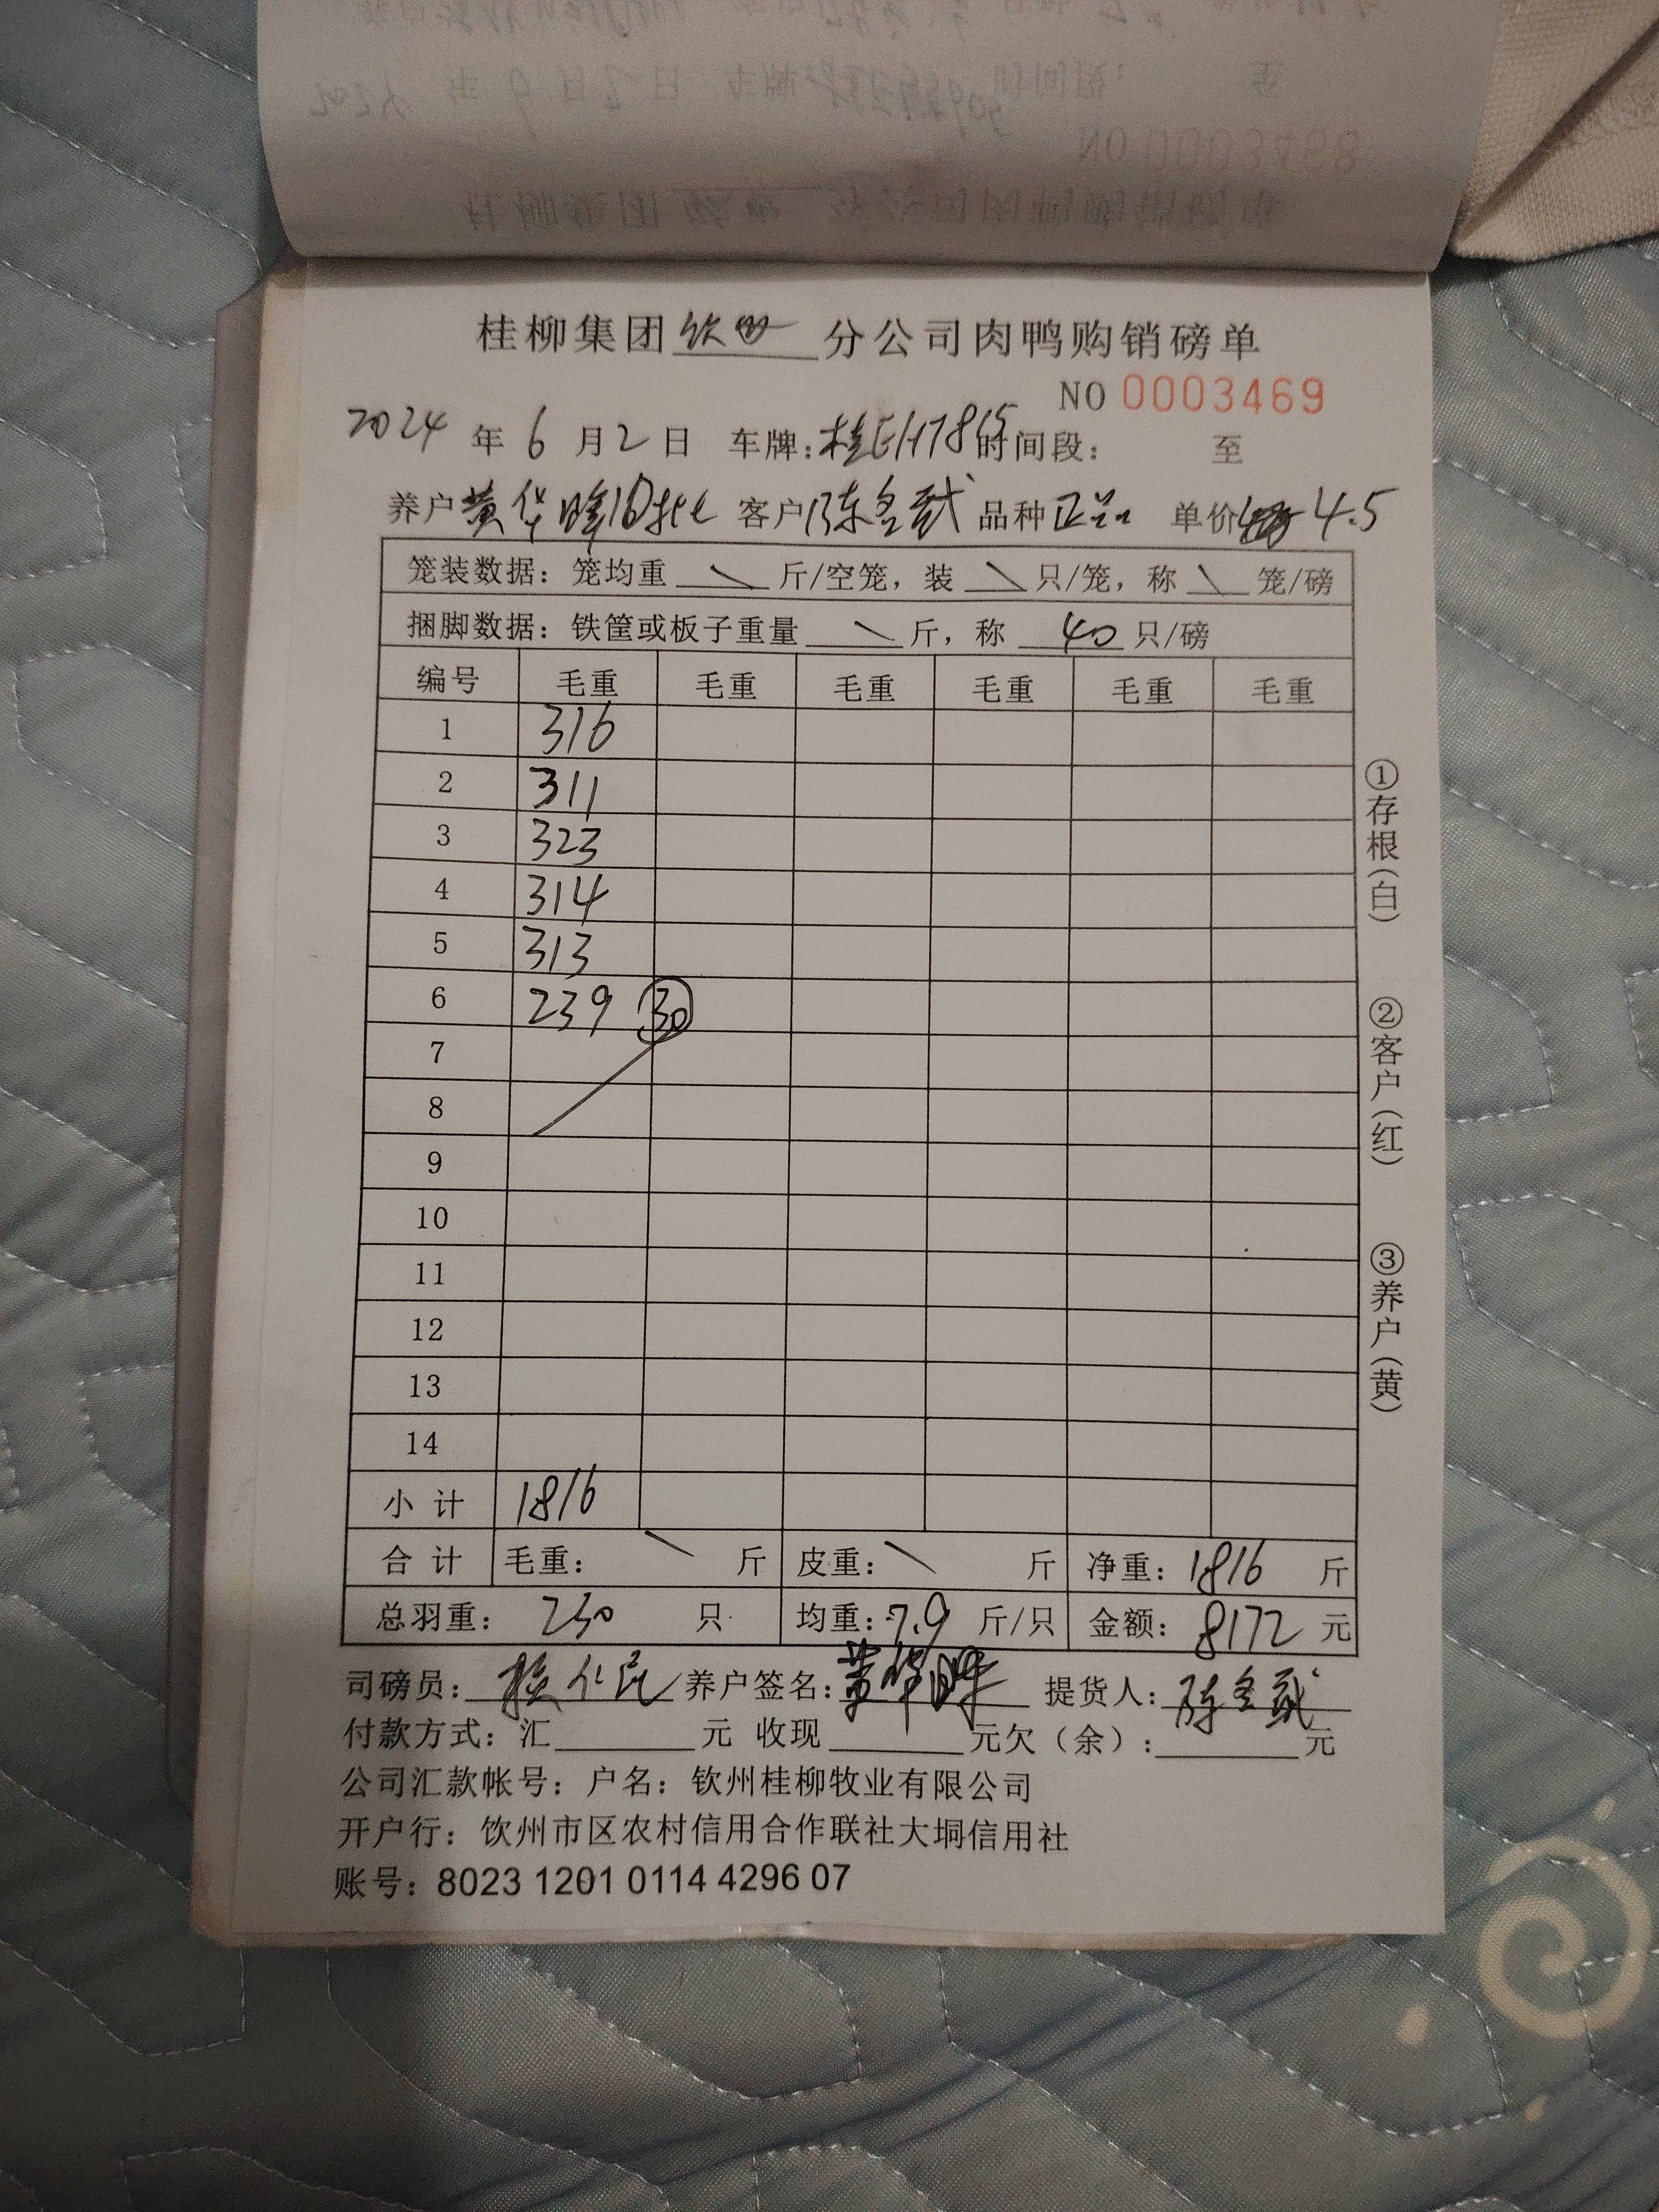 桂柳集团钦州分公司肉鸭购销磅单
NO 0003469
2024年6月2日 车牌:桂EH7815时间段: 至
养户黄华晖 客户陈冬武 品种正品 单价 4.5
笼装数据:笼均重 \ 斤/空笼,装 \ 只/笼,称 \ 笼/磅
捆脚数据:铁筐或板子重量 \ 斤,称 40 只/磅
编号 毛重 毛重 毛重 毛重 毛重 毛重
1 316
2 311
3 323
4 314
5 313
6 239 30
7
8
9
10
11
12
13
14
小计 1816
合计 毛重: \ 斤 皮重: \ 斤 净重:1816 斤
总羽重: 230 只 均重:7.9 斤/只 金额:8172 元
司磅员: 养户签名:黄华晖 提货人:陈冬武
付款方式:汇 元 收现 元欠(余): 元
公司汇款帐号:户名:钦州桂柳牧业有限公司
开户行:饮州市区农村信用合作联社大垌信用社
账号:8023 1201 0114 4296 07
①存根(白)
②客户(红)
③养户(黄)